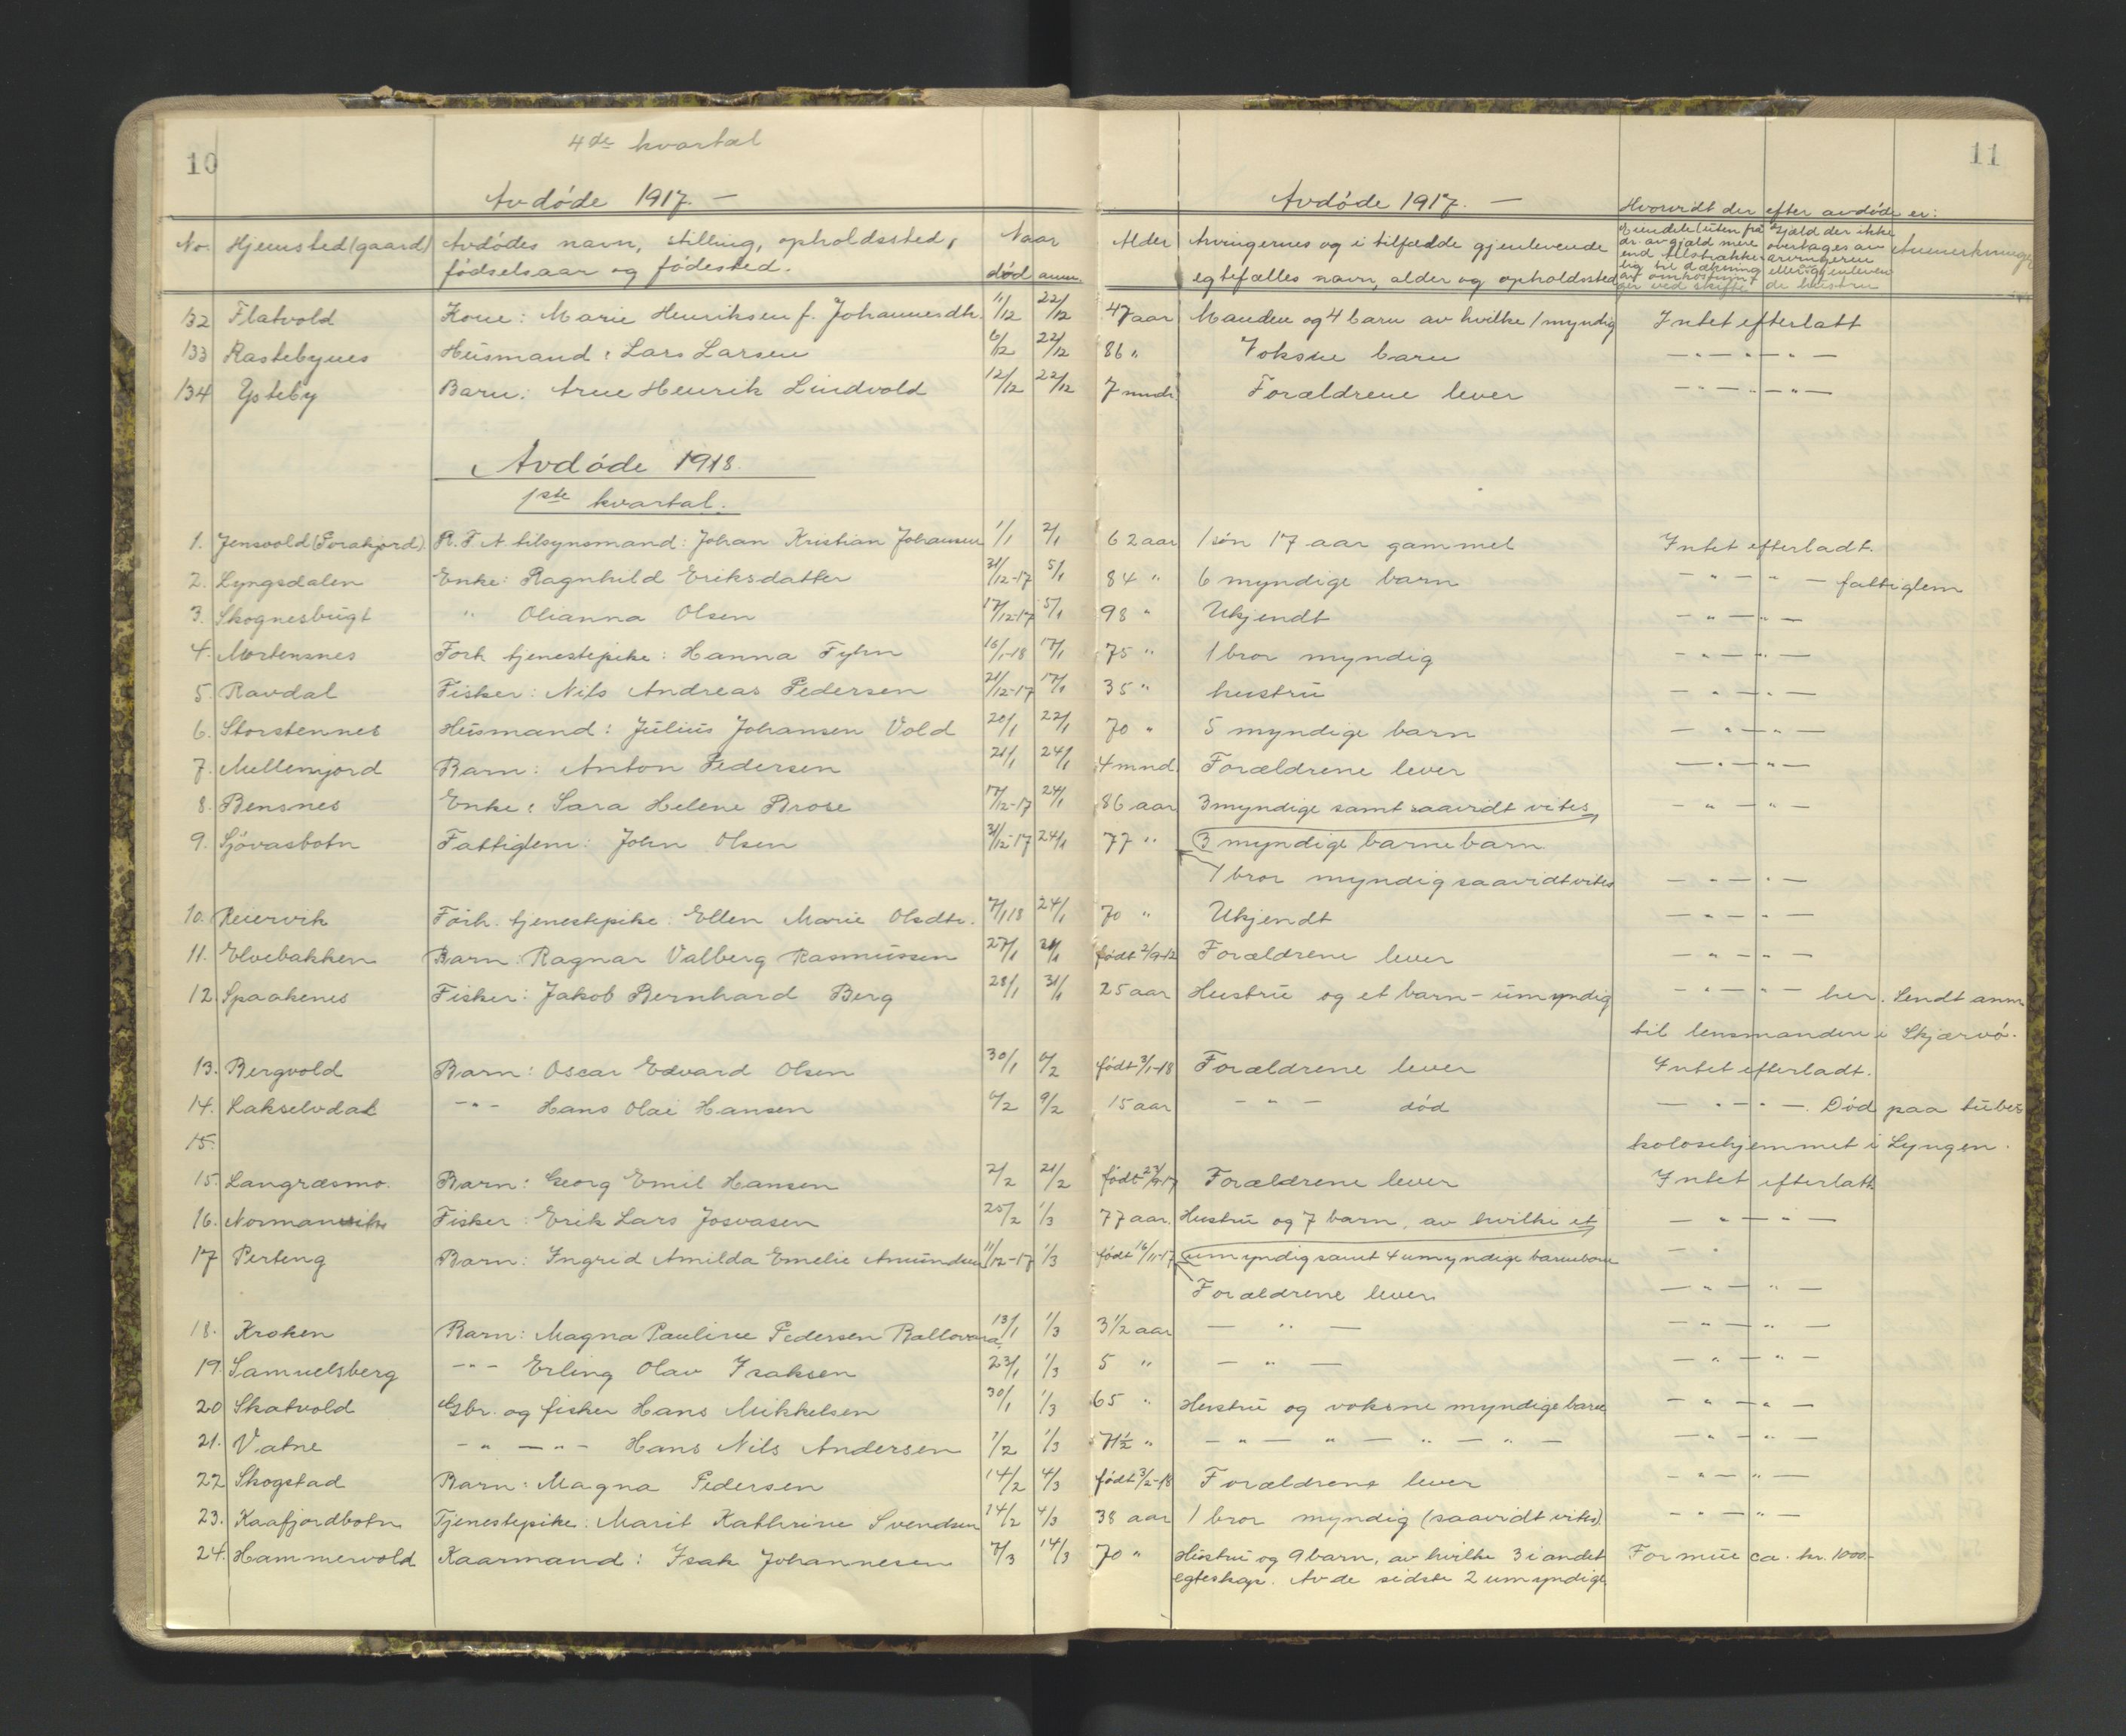 10
4de kvartal
Avdøde 1917. —
No. Hjemsted (gaard) Avdødes navn, stilling, opholdssted, fødselsaar og fødested. Naar død anm.
132 Flatvold Kone: Marie Henriksen f. Johannesdtr. 11/12 22/12
133 Rastebynes Husmand: Lars Larsen 6/12 22/12
134 Ysteby Barn: Arne Henrik Lindvold 12/12 22/12
Avdøde 1918.
1ste kvartal.
1. Jensvold (Sorakjord) R.F.A. tilsynsmand: Johan Kristian Johansen 1/1 2/1
2. Lyngsdalen Enke: Ragnhild Eriksdatter 31/12-17 5/1
3. Skognesbugt " Olianna Olsen 17/12-17 5/1
4. Mortensnes Forh. tjenestepike: Hanna Fyhn 16/1-18 17/1
5. Ravdal Fisker: Nils Andreas Pedersen 21/12-17 17/1
6. Storstennes Husmand: Julius Johansen Vold 20/1 22/1
7. Mellemjord Barn: Anton Pedersen 21/1 24/1
8. Bensnes Enke: Sara Helene Brose 17/12-17 24/1
9. Sjøvasbotn Fattiglem: John Olsen 31/12-17 24/1
10. Reiervik Forh. tjenestepike: Ellen Marie Olsdtr. 7/1 18 24/1
11. Elvebakken Barn: Ragnar Valberg Rasmussen 27/1
12 Spaakenes Fisker: Jakob Bernhard Berg 28/1 31/1
13. Bergvold Barn: Oscar Edvard Olsen 30/1 6/2
14. Lakselvdal — " — Hans Olai Hansen 6/2 9/2
15.
15. Langræsmo. Barn: Georg Emil Hansen 2/2 21/2
16. Normanvik Fisker: Erik Lars Josvasen 25/2 1/3
17 Perteng Barn: Ingrid Amilda Emelie Amundsen 11/12-17 1/3
18. Kroken Barn: Magna Pauline Pedersen Ballovara 13/1 1/3
19. Samuelsberg — " — Erling Olav Isaksen 23/1 1/3
20 Skatvold Gbr. og fisker Hans Mikkelsen 30/1 1/3
21. Vatne — " — — " — Hans Nils Andersen 1/2 1/3
22 Skogstad Barn: Magna Pedersen 14/2 4/3
23. Kaafjordbotn Tjenestepike: Marit Kathrine Svendsen 14/2 4/3
24. Hammervold Kaarmand: Isak Johannesen 7/3 14/3
11
Avdøde 1917. —
Alder Arvingernes og i tilfælde gjenlevende egtefælles navn, alder og opholdssted
Hvorvidt der efter avdøde er:
Eiendele (uten fradr. av gjæld mere end tilstrækkelig til dækning av omkostninger ved skifte
Gjæld der ikke overtages av arvingerne eller gjenlevende hustru
Anmerkninger
47 aar Manden og 4 barn av hvilke 1 myndig Intet efterlatt
86 " Voksne barn — " — " —
7 mndr Forældrene lever — " — " —
62 aar 1 søn 17 aar gammel Intet efterladt.
84 " 6 myndige barn — " — " — fattiglem
98 " Ukjendt — " — " —
75 " 1 bror myndig — " — " —
35 " hustru — " — " —
70 " 5 myndige barn — " — " —
4 mnd. Forældrene lever — " — " —
86 aar 3 myndige samt saavidt vites — " — " —
77 " 3 myndige barnebarn
1 bror myndig saavidt vites — " — " —
70 " Ukjendt — " — " —
født 2/9-12 Forældrene lever — " — " —
25 aar Hustru og et barn - umyndig — " — " — her. Sendt anm.
til lensmanden i Skjærvø.
født 3/1-18 Forældrene lever Intet efterladt.
15 aar — " — død — " — " —. Død paa tuber
kolosehjemmet i Lyngen.
født 23/9-17 Forældrene lever Intet efterlatt
77 aar. Hustru og 7 barn, av hvilke et — " — " —
født 16/11-17 umyndig samt 4 umyndige barnebarn — "
Forældrene lever — " — " —
3 1/2 aar — " — — " — " —
5 " — " — — " — " —
65 " Hustru og voksne myndige barn — " — " —
71 1/2 " — " — " — " — " — — " — " —
født 3/2-18 Forældrene lever — " — " —
38 aar 1 bror myndig (saavidt vites). — " — " —
70 " Hustru og 9 barn, av hvilke 3 i andet Formue ca. kr. 1000.-
egteskap. Av de sidste 2 umyndige